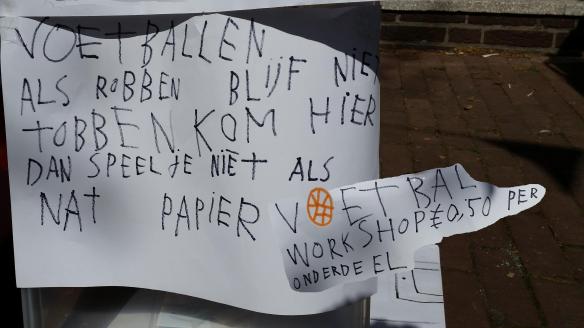 VOETBALLEN
ALS ROBBEN BLIJF NIET
TOBBEN KOM HIER
DAN SPEEL JE NIET ALS
NAT PAPIER
VOETBAL
WORKSHOP €0,50 PER
ONDERDEEL